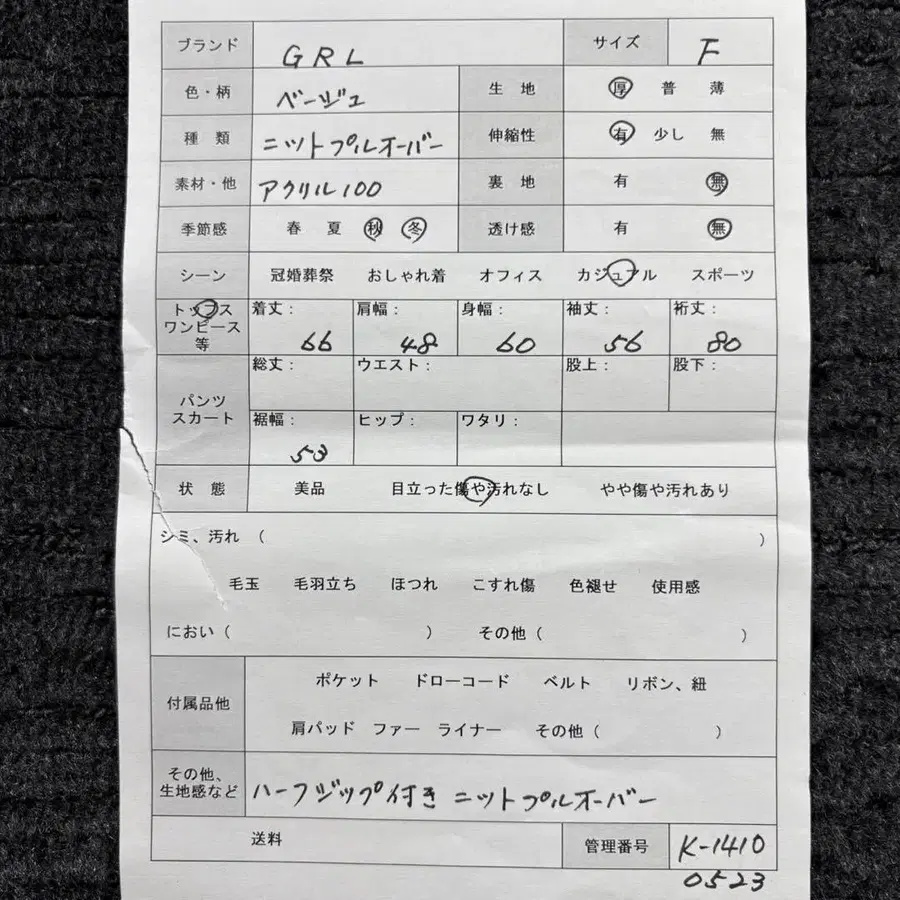 ブランド GRL サイズ F
色・柄 ベージュ 生 地 厚 普 薄
種 類 ニットプルオーバー 伸縮性 有 少し 無
素材・他 アクリル100 裏 地 有 無
季節感 春 夏 秋 冬 透け感 有 無
シーン 冠婚葬祭 おしゃれ着 オフィス カジュアル スポーツ
トップス
ワンピース
等
着丈: 肩幅: 身幅: 袖丈: 裄丈:
66 48 60 56 80
パンツ
スカート
総丈: ウエスト: 股上: 股下:
裾幅: ヒップ: ワタリ:
53
状 態 美品 目立った傷や汚れなし やや傷や汚れあり
シミ、汚れ ( )
毛玉 毛羽立ち ほつれ こすれ傷 色褪せ 使用感
におい ( ) その他 ( )
付属品他
ポケット ドローコード ベルト リボン、紐
肩パッド ファー ライナー その他 ( )
その他、
生地感など
ハーフジップ付き ニットプルオーバー
送料 管理番号 K-1410
0523